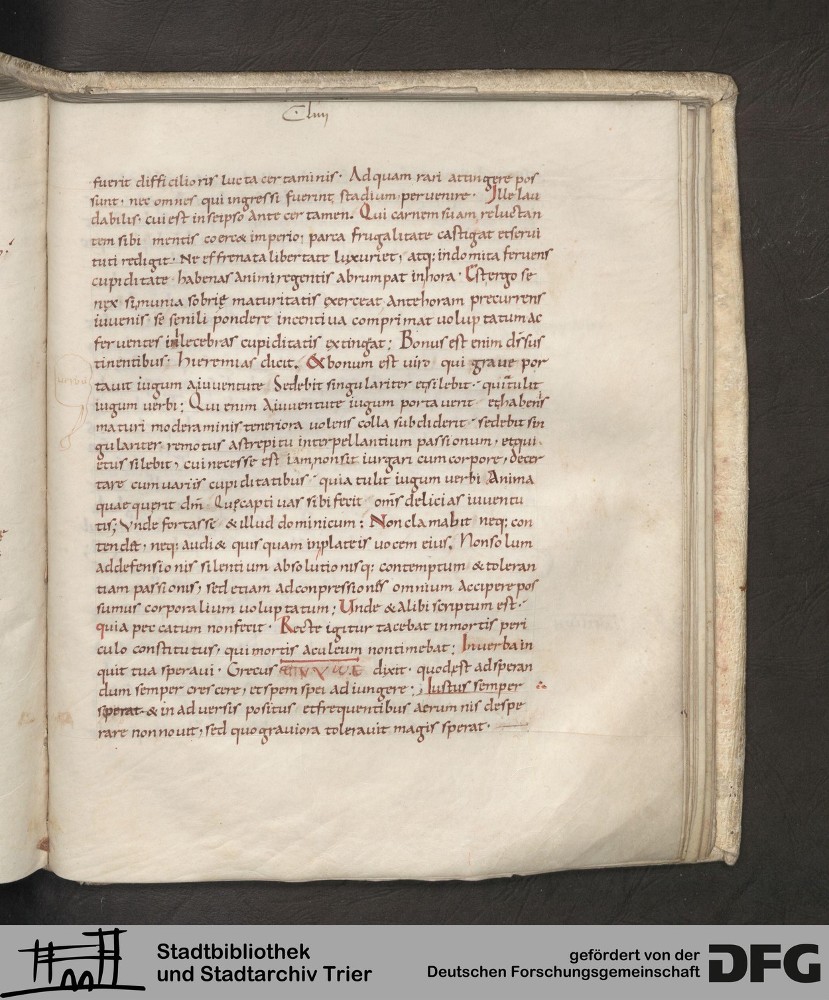 Cliiii
fuerit difficilioris lucta certaminis· Ad quam rari attingere pos
sunt· nec omnes qui ingressi fuerint, stadium pervenire· Ille lau
dabilis· cui est in seipso ante certamen. Qui carnem suam reluctan
tem sibi mentis coercet imperio; parca frugalitate castigat et servi
tuti redigit· Ne effrenata libertate luxuriet, atq; indomita fervens
cupiditate habenas animi regentis abrumpat in hora· Est ergo se
nex si munia sobrię maturitatis exerceat ante horam precurrens
iuvenis se senili pondere incentiva comprimat voluptatum ac
ferventes inlecebras cupiditatis extingat; Bonus est enim dñs sus
tinentibus; hieremias dicit. & bonum est viro qui grave por
tavit iugum a iuventute Sedebit singulariter et silebit· qui tulit
iugum verbi; Qui enim a iuventute iugum portaverit et habenis
maturi moderaminis teneriora volens colla subdiderit· sedebit sin
gulariter remotus a strepitu interpellantium passionum, et qui
etus silebit, cui necesse est iam non sit iurgari cum corpore, decer
tare cum variis cupiditatibus· quia tulit iugum verbi Anima
quae querit dm̄ Quę captivas sibi fecit om̄s delicias iuventu
tis; Vnde fortasse & illud dominicum: Non clamabit neq; con
tendet, neq; audi& quisquam in plateis vocem eius. Non solum
ad defensionis silentium absolutionisq; contemptum & toleran
tiam passionis, sed etiam ad conpressionis omnium accipere pos
sumus corporalium voluptatum; Unde & alibi scriptum est·
quia peccatum non fecit· Recte igitur tacebat in mortis peri
culo constitutus, qui mortis aculeum non timebat; In verba in
quit tua speravi· Grecus dixit· quod est ad speran
dum semper crescere, et spem spei adiungere; Iustus semper
sperat & in adversis positus et frequentibus aerumnis despe
rare non novit, sed quo graviora toleravit magis sperat·
Stadtbibliothek
und Stadtarchiv Trier
gefördert von der
Deutschen Forschungsgemeinschaft
DFG